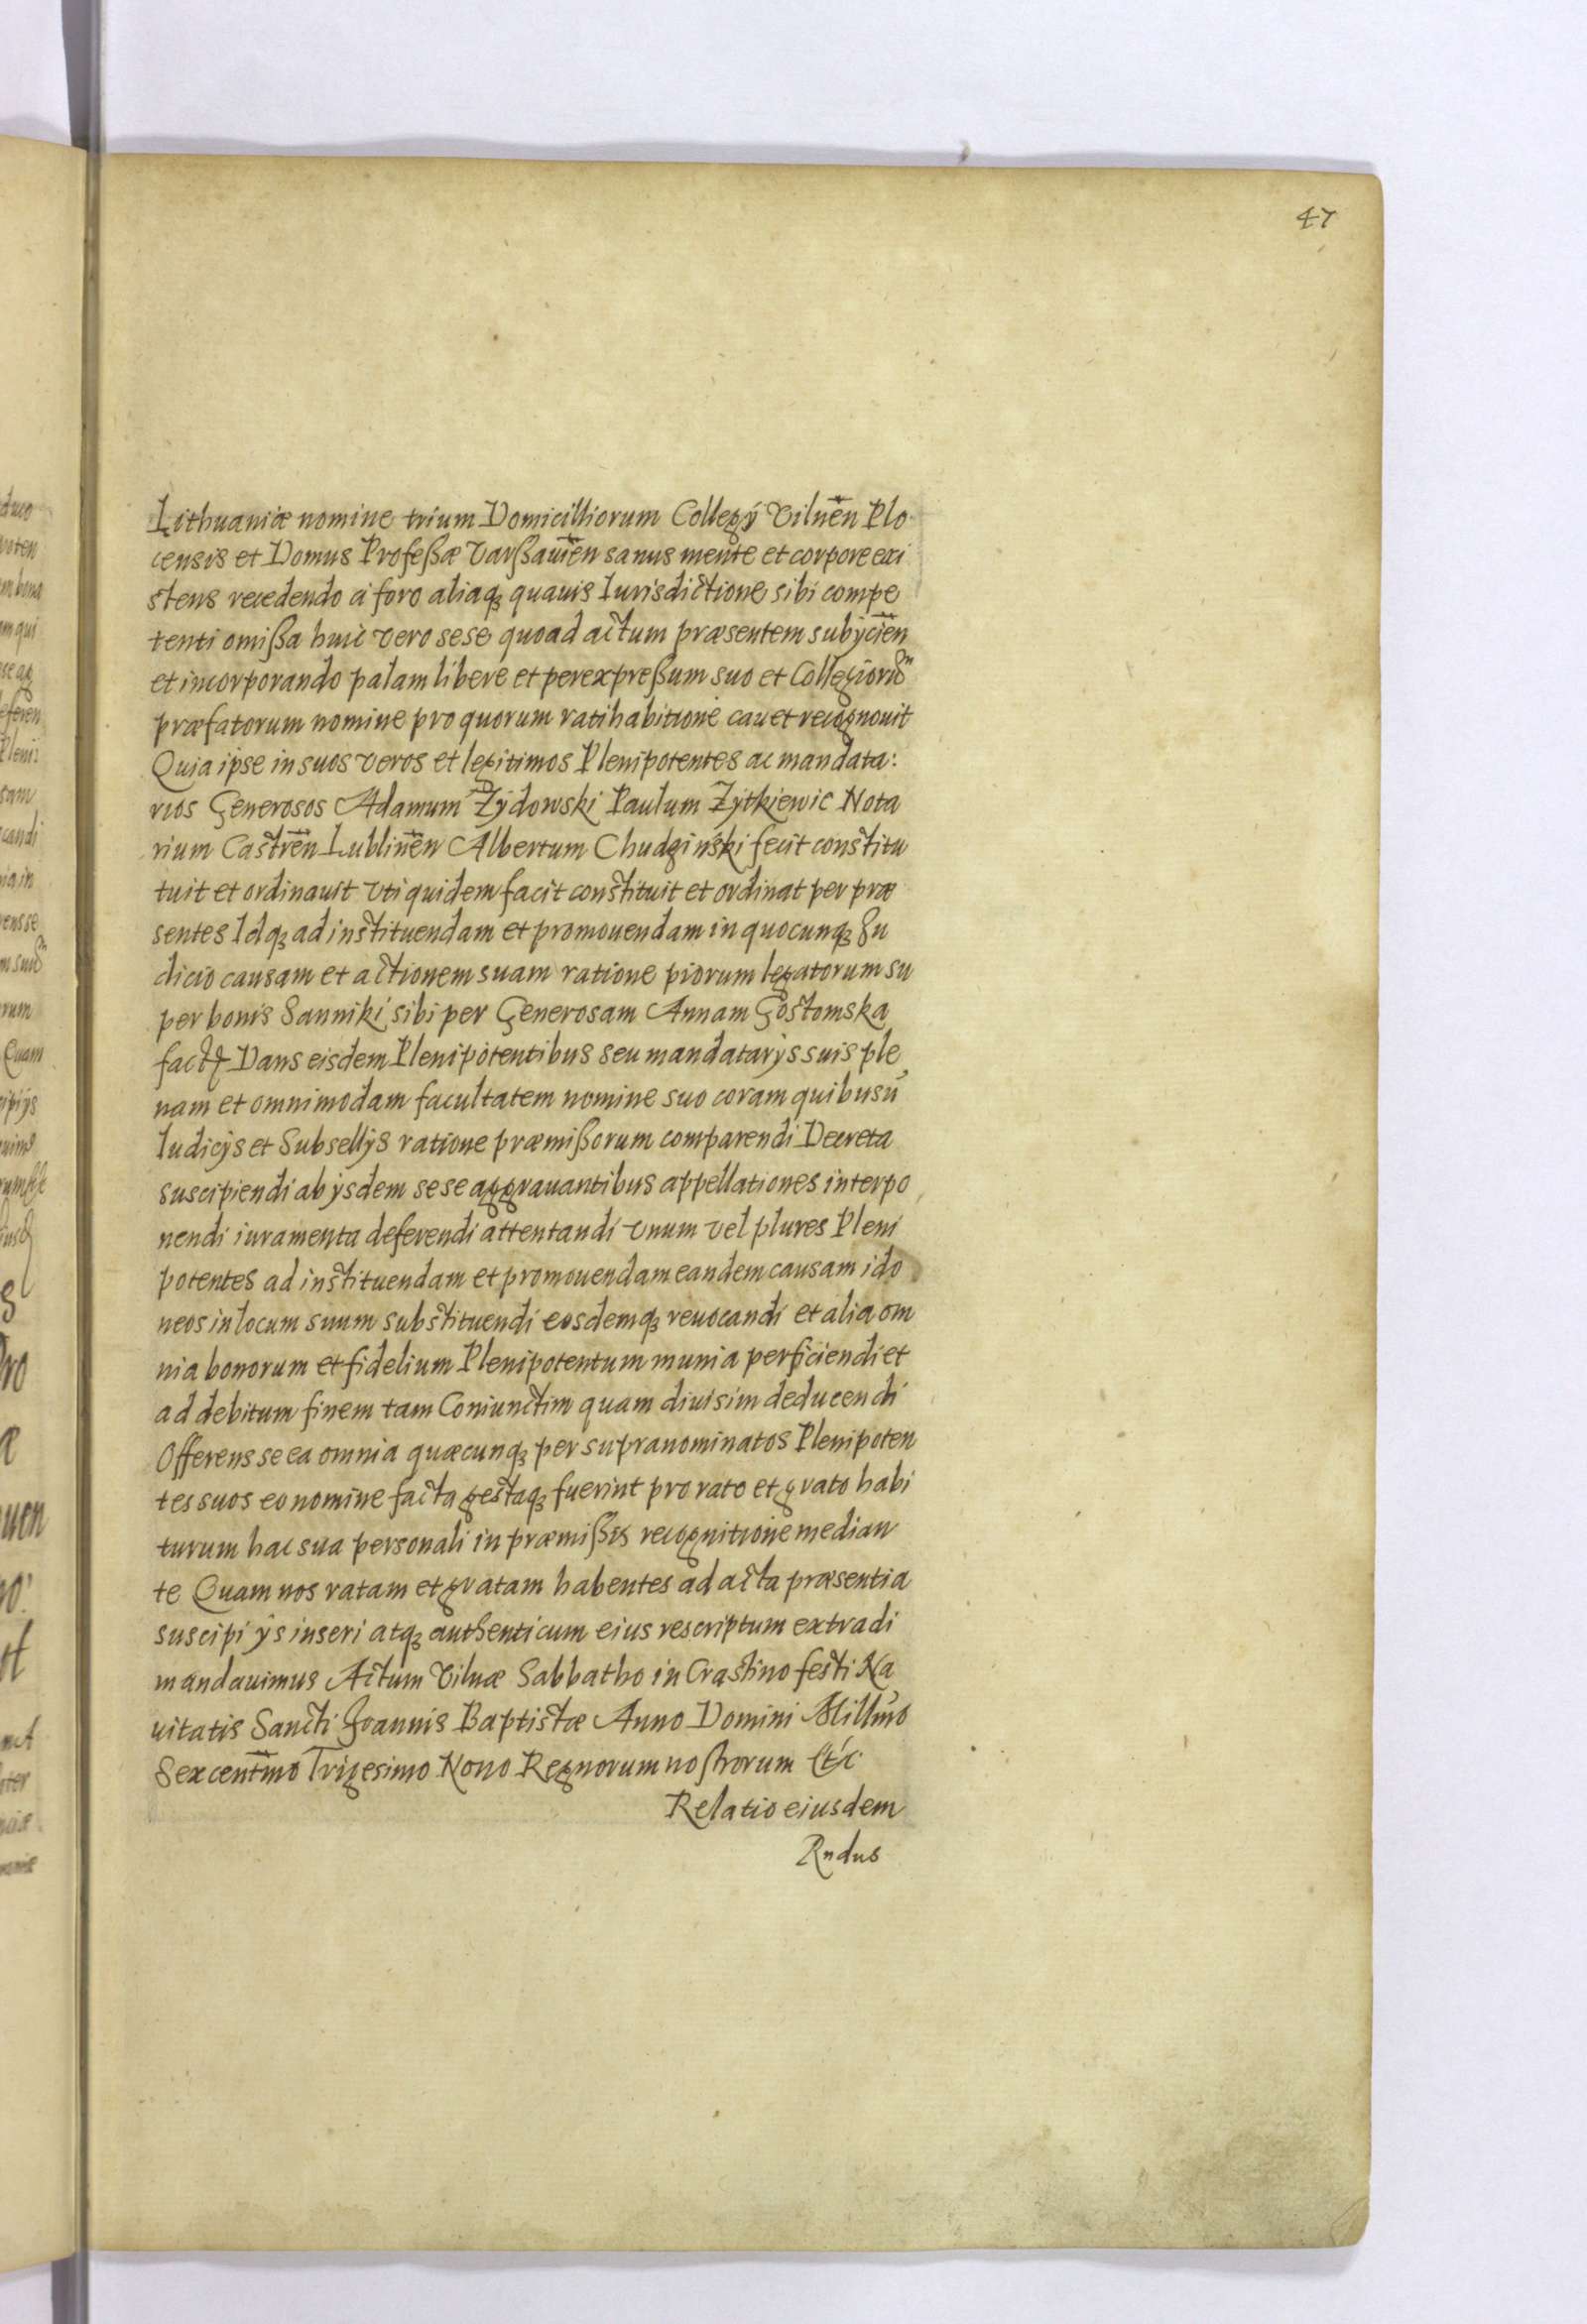 47
Lithuaniæ nomine trium Domicilliorum Collegÿ Vilnen̄ Plo
censis et Domus Profeßæ Varßauien̄ sanus mente et corpore exi
stens recedendo a foro aliaqꝫ quauis Iurisdictione sibi compe
tenti omißa huic vero sese quoad actum præsentem subÿcien̄
et incorporando palam libere et per expreßum suo et Collegioru͞
præfatorum nomine pro quorum ratihabitione cauet recognouit
Quia ipse in suos veros et legitimos Plenipotentes ac mandata:
rios Generosos Adamum Zÿdowski Paulum Zÿtkiewic Nota
rium Castren̄ Lublinen̄ Albertum Chudziński fecit constitu
tuit et ordinauit vti quidem facit constituit et ordinat per præ
sentes Idqꝫ ad instituendam et promouendam in quocunqꝫ Ju
dicio causam et actionem suam ratione piorum legatorum su
per bonis Sanniki sibi per Generosam Annam Gostomska
factꝝ Dans eisdem Plenipotentibus seu mandatarÿs suis ple
nam et omnimodam facultatem nomine suo coram quibusu͛
Iudicÿs et Subsellÿs ratione præmißorum comparendi Decreta
suscipiendi ab ÿsdem sese aggrauantibus appellationes interpo
nendi iuramenta deferendi attentandi vnum vel plures Pleni
potentes ad instituendam et promouendam eandem causam ido
neos in locum suum substituendi eosdemqꝫ reuocandi et alia om
nia bonorum et fidelium Plenipotentum munia perficiendi et
ad debitum finem tam Coniunctim quam diuisim deducendi
Offerens se ea omnia quæcunqꝫ per supranominatos Plenipoten
tes suos eo nomine facta gestaqꝫ fuerint pro rato et grato habi
turum hac sua personali in præmißis recognitione median
te Quam nos ratam et gratam habentes ad acta præsentia
suscipi ÿs inseri atqꝫ authenticum eius rescriptum extradi
mandauimus Actum Vilnæ Sabbatho in Crastino festi Na
uitatis Sancti Joannis Baptistæ Anno Domini Millm̄o
Sexcentm̄o Trigesimo Nono Regnorum nostrorum Etc
Relatio eiusdem
Rndus